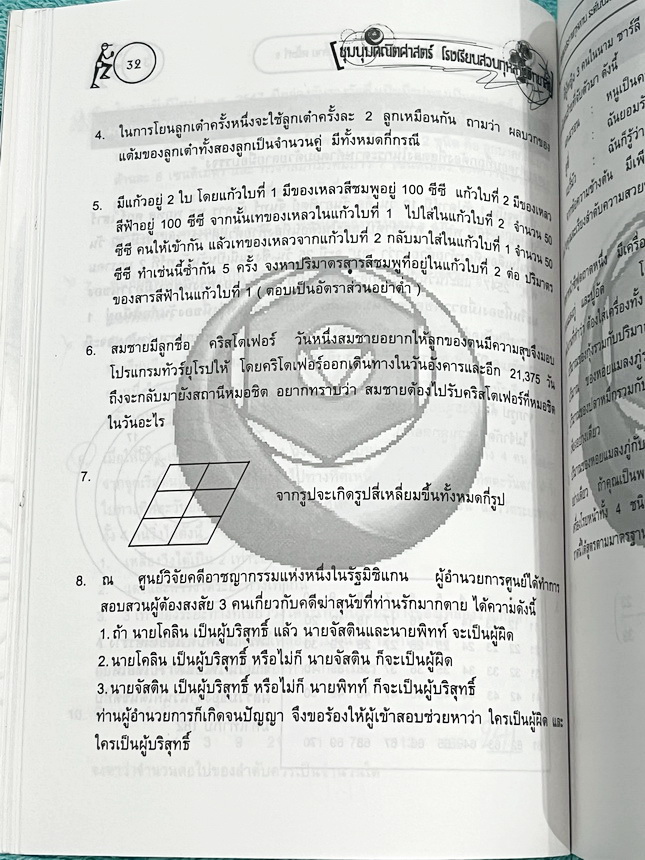 32
ชุมนุมคณิตศาสตร์ โรงเรียนสวนกุหลาบวิทยาลัย
4. ในการโยนลูกเต๋าครั้งหนึ่งจะใช้ลูกเต๋าครั้งละ 2 ลูกเหมือนกัน ถามว่า ผลบวกของ
แต้มของลูกเต๋าทั้งสองลูกเป็นจำนวนคู่ มีทั้งหมดกี่กรณี
5. มีแก้วอยู่ 2 ใบ โดยแก้วใบที่ 1 มีของเหลวสีชมพูอยู่ 100 ซีซี แก้วใบที่ 2 มีของเหลว
สีฟ้าอยู่ 100 ซีซี จากนั้นเทของเหลวในแก้วใบที่ 1 ไปใส่ในแก้วใบที่ 2 จำนวน 50
ซีซี คนให้เข้ากัน แล้วเทของเหลวจากแก้วใบที่ 2 กลับมาใส่ในแก้วใบที่ 1 จำนวน 50
ซีซี ทำเช่นนี้ซ้ำกัน 5 ครั้ง จงหาปริมาตรสารสีชมพูที่อยู่ในแก้วใบที่ 2 ต่อ ปริมาตร
ของสารสีฟ้าในแก้วใบที่ 1 ( ตอบเป็นอัตราส่วนอย่างต่ำ )
6. สมชายมีลูกชื่อ คริสโตเฟอร์ วันหนึ่งสมชายอยากให้ลูกของตนมีความสุขจึงมอบ
โปรแกรมทัวร์ยุโรปให้ โดยคริโตเฟอร์ออกเดินทางในวันอังคารและอีก 21,375 วัน
ถึงจะกลับมายังสถานีหมอชิต อยากทราบว่า สมชายต้องไปรับคริสโตเฟอร์ที่หมอชิต
ในวันอะไร
7. จากรูปจะเกิดรูปสี่เหลี่ยมขึ้นทั้งหมดกี่รูป
8. ณ ศูนย์วิจัยคดีอาชญากรรมแห่งหนึ่งในรัฐมิชิแกน ผู้อำนวยการศูนย์ได้ทำการ
สอบสวนผู้ต้องสงสัย 3 คนเกี่ยวกับคดีฆ่าสุนัขที่ท่านรักมากตาย ได้ความดังนี้
1. ถ้า นายโคลิน เป็นผู้บริสุทธิ์ แล้ว นายจัสตินและนายพิทท์ จะเป็นผู้ผิด
2. นายโคลิน เป็นผู้บริสุทธิ์ หรือไม่ก็ นายจัสติน ก็จะเป็นผู้ผิด
3. นายจัสติน เป็นผู้บริสุทธิ์ หรือไม่ก็ นายพิทท์ ก็จะเป็นผู้บริสุทธิ์
ท่านผู้อำนวยการก็เกิดจนปัญญา จึงขอร้องให้ผู้เข้าสอบช่วยหาว่า ใครเป็นผู้ผิด และ
ใครเป็นผู้บริสุทธิ์